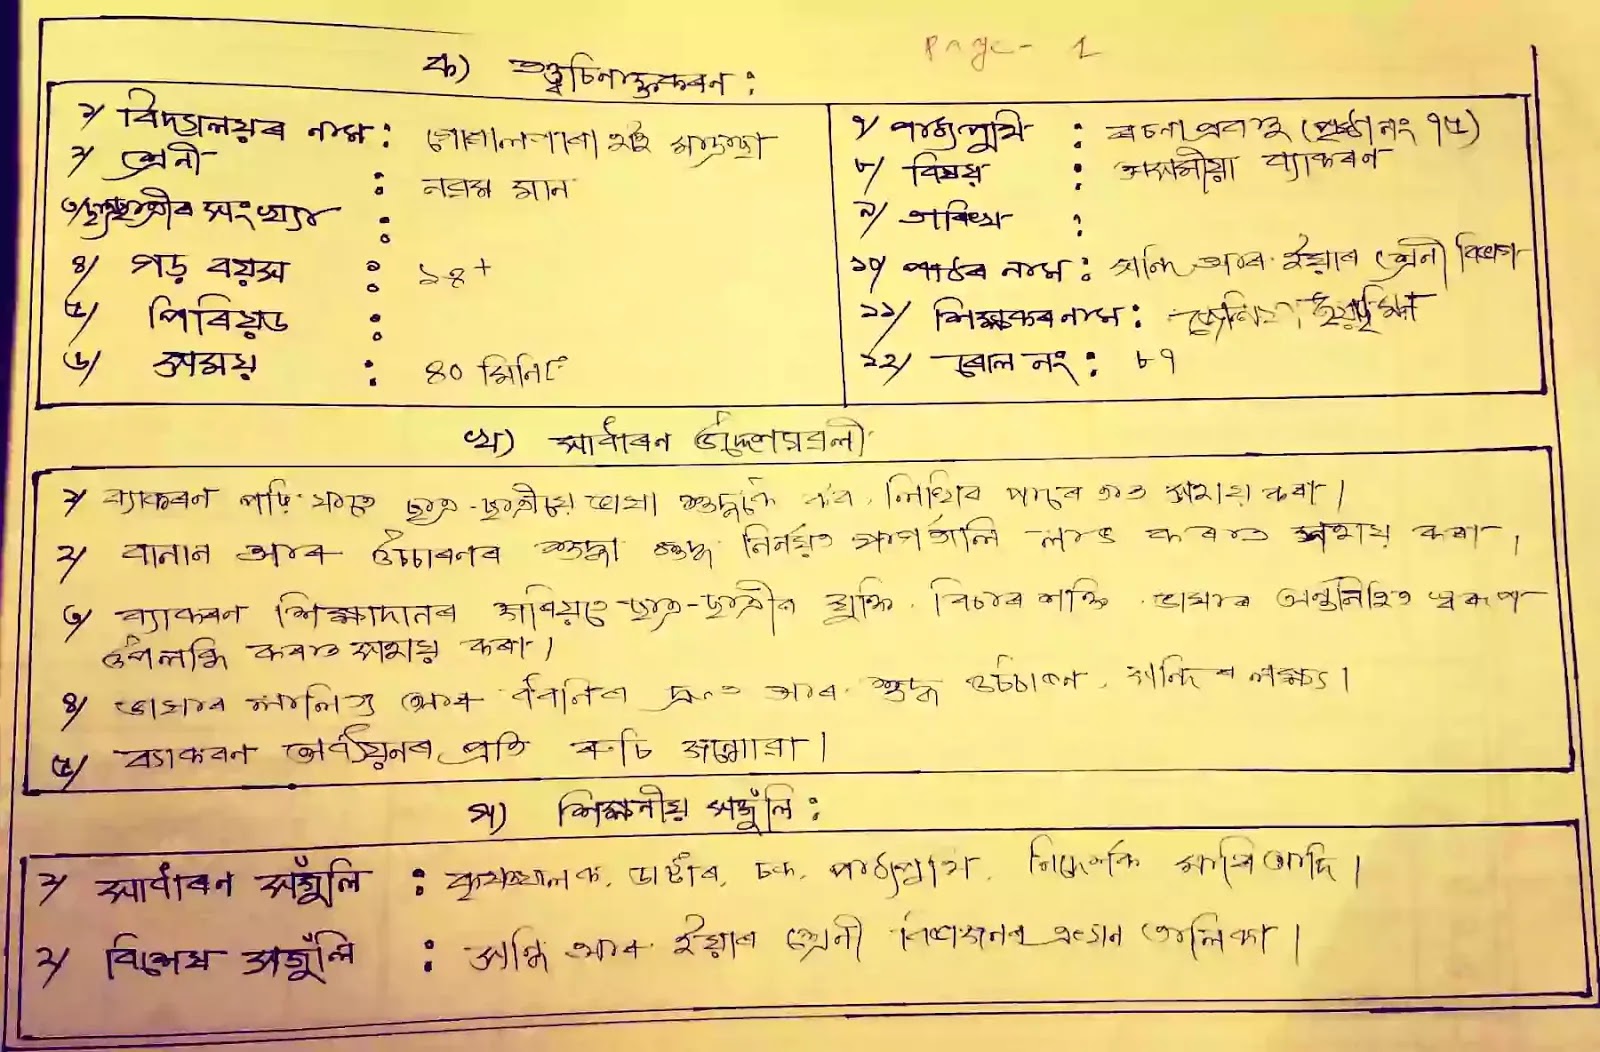 Page - 1
ক) তত্ত্বচিনাক্তকৰন :
১/ বিদ্যালয়ৰ নাম : গোৱালপাৰা হাই মাদ্ৰাছা
২/ শ্ৰেনী : নৱম মান
৩/ ছাত্ৰছাত্ৰীৰ সংখ্যা :
৪/ গড় বয়স : ১৪+
৫/ পিৰিয়ড :
৬/ সময় : ৪০ মিনিট
৭/ পাঠ্যপুথি : ৰচনা প্ৰবন্ধ (পৃষ্ঠা নং ৭৫)
৮/ বিষয় : অসমীয়া ব্যাকৰন
৯/ তাৰিখ :
১০/ পাঠৰ নাম : সন্ধি আৰু ইয়াৰ শ্ৰেনী বিভাগ
১১/ শিক্ষকৰ নাম :
১২/ ৰোল নং : ৮৭
খ) সাধাৰন উদ্দেশ্যৱলী
১/ ব্যাকৰন পঢ়ি যাতে ছাত্ৰ-ছাত্ৰীয়ে ভাষা শুদ্ধকৈ লিখিব পাৰে তাত সহায় কৰা।
২/ বানান আৰু উচ্চাৰনৰ শুদ্ধা শুদ্ধ নিৰ্নয়ত পাৰ্গতালি লাভ কৰাত সহায় কৰা।
৩/ ব্যাকৰন শিক্ষাদানৰ জৰিয়তে ছাত্ৰ-ছাত্ৰীৰ যুক্তি, বিচাৰ শক্তি, ভাষাৰ অন্তৰ্নিহিত স্বৰূপ
উপলব্ধি কৰাত সহায় কৰা।
৪/ ভাষাৰ লালিত্য আৰু ধ্বনিৰ দ্ৰুত আৰু শুদ্ধ উচ্চাৰন, সন্ধিৰ লক্ষ্য।
৫/ ব্যাকৰন অধ্যয়নৰ প্ৰতি ৰুচি জন্মোৱা।
গ) শিক্ষনীয় সজুঁলি :
১/ সাধাৰন সজুঁলি : কৃষ্ণফলক, ডাষ্টাৰ, চক, পাঠ্যপুথি, নিৰ্দেশক মাৰি আদি।
২/ বিশেষ সজুঁলি : সন্ধি আৰু ইয়াৰ শ্ৰেনী বিভাজনৰ এখন তালিকা।